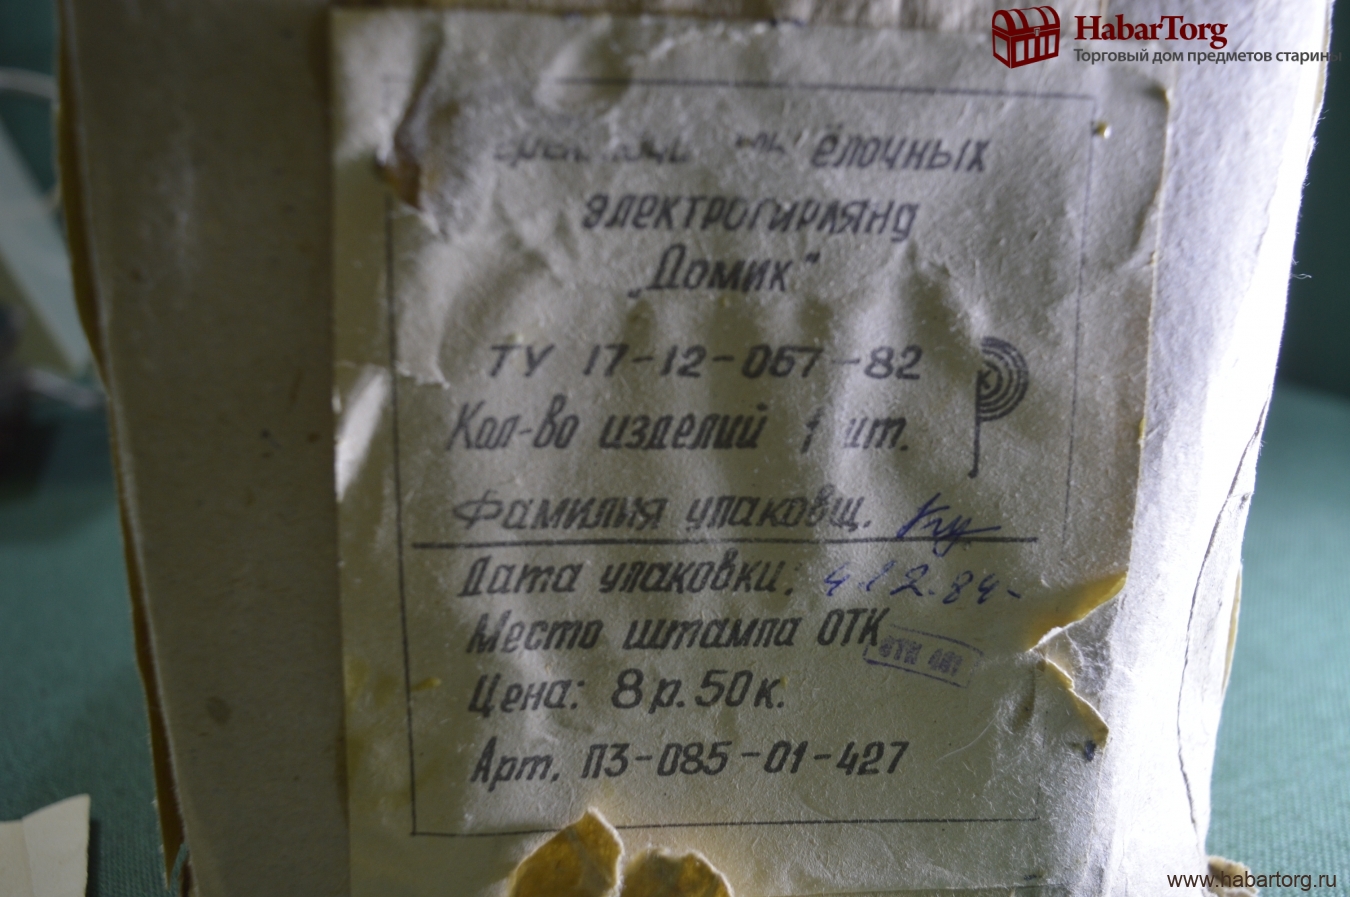 HabarTorg
Торговый дом предметов старины
ёлочных
электрогирлянд
„Домик"
ТУ 17-12-067-82
Кол-во изделий 1 шт.
Фамилия упаковщ.
Дата упаковки: 4.12.84-
Место штампа ОТК
Цена: 8р.50к.
Арт. П3-085-01-427
www.habartorg.ru